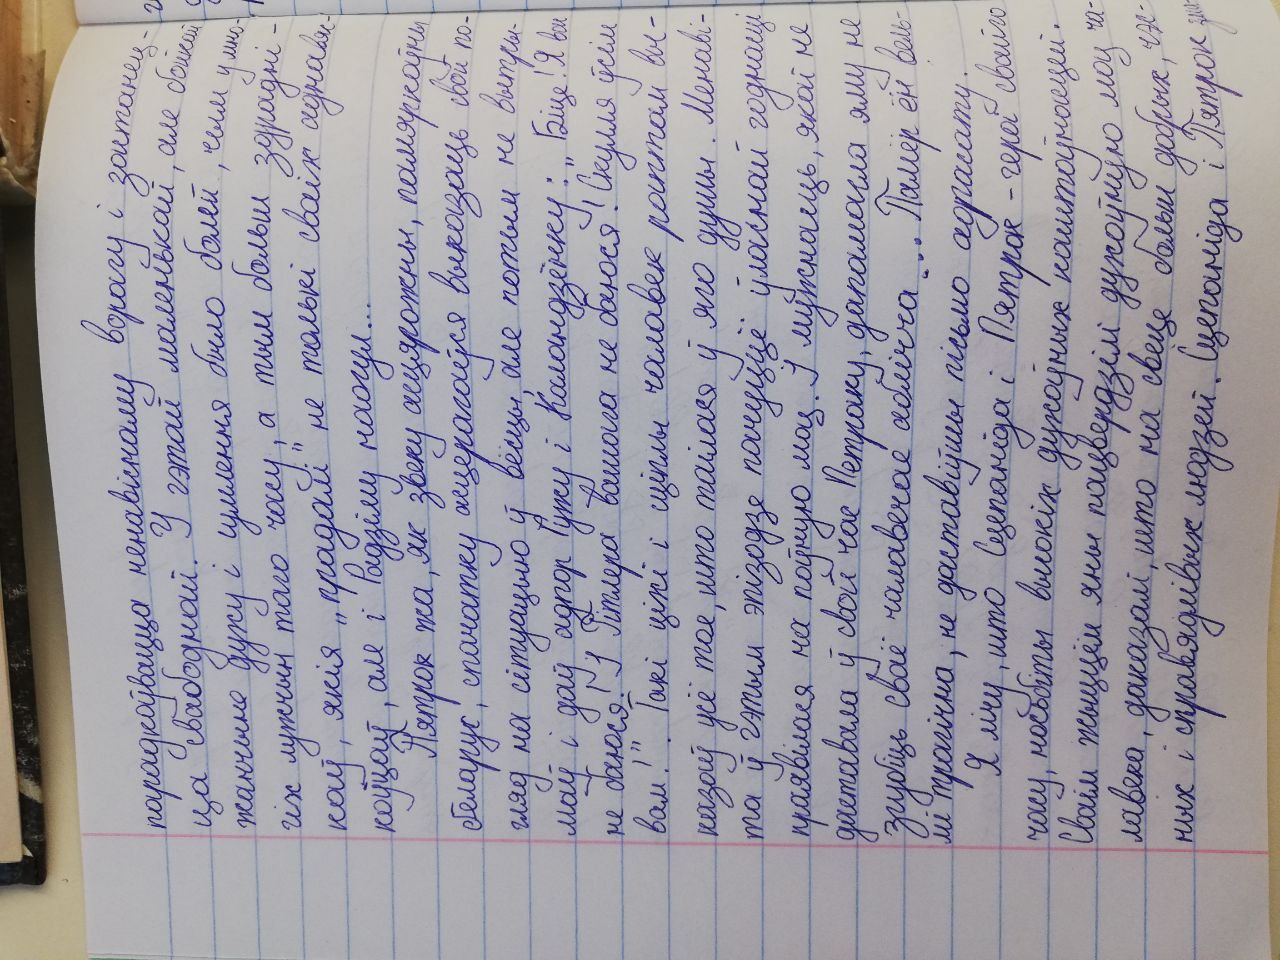 парадкоўвацца ненавіснаму ворагу і застанец-
ца свабоднай. У гэтай маленькай, але бойкай
жанчыне духу і сумлення было болей, чым у мно-
гіх мужчын таго часу, а тым больш здраднi-
каў, якія "прадалі" не толькі сваіх аднавяс-
коўцаў, але і Радзіму наогул...
Пятрок жа, як звеку асцярожны, памяркоўны
беларус, спачатку асцерагаўся выказаць свой по-
гляд на сітуацыю ў вёсцы, але потым не вытры-
маў і даў адпор Гужу і Каландзёнку: "Біце! Я вас
не баюся! І Гітлера вашага не баюся! Скулля ўсім
вам!" Такі ціхі і сціплы чалавек раптам вы-
казаў усё тое, што таілася ў яго душы. Менаві-
та ў гэтым эпізодзе пачуццё ўласнай годнасці
праявілася на поўную моц. І мужнасць, якой не
даставала ў свой час Петраку, дапамагла яму не
згубіць сваё чалавечае аблічча". Памёр ён вель-
мі трагічна, не даставіўшы пісьмо адрасату.
Я лічу, што Сцепаніда і Пятрок - героі свайго
часу, носьбіты высокіх духоўных каштоўнасцей.
Сваім жыццём яны пацвердзілі духоўную моц ча-
лавека, даказалі, што на свеце больш добрых, чэс-
ных і справядлівых людзей. Сцепаніда і Пятрок